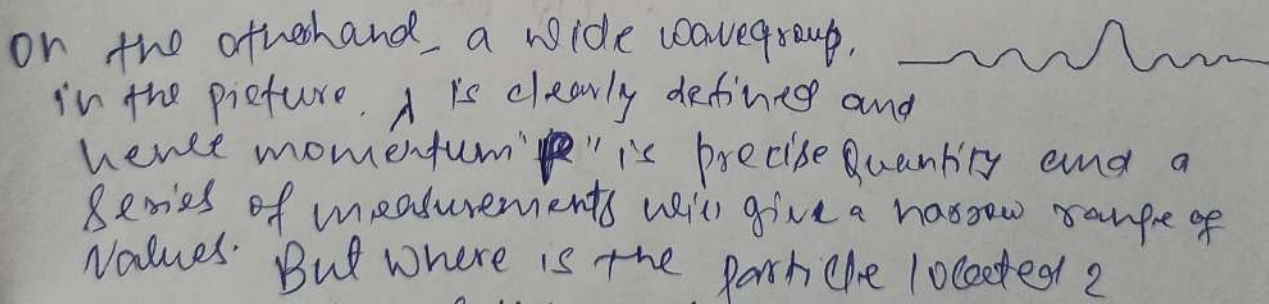 On the otherhand, a wide wavegroup,
in the picture. λ is clearly defined and
hence momentum "p" is precise Quantity and a
Series of measurements will give a narrow range of
Values. But where is the particle located ?